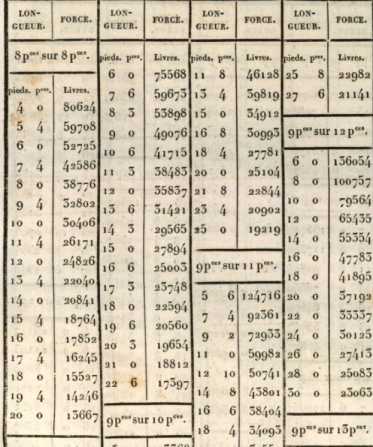 LON-
GUEUR.
FORCE.
8 pces sur 8 pces.
pieds. pces. Livres.
4 0 80624
5 4 59708
6 0 52725
7 4 42586
8 0 38776
9 4 32802
10 0 30406
11 4 26171
12 0 24826
13 4 22040
14 0 20841
15 4 18764
16 0 17852
17 4 16245
18 0 15527
19 4 14246
20 0 13667
LON-
GUEUR.
FORCE.
pieds. pces. Livres.
6 0 75568
7 6 59673
8 3 53898
9 0 49076
10 6 41715
11 3 38483
12 0 35837
13 6 31421
14 3 29565
15 0 27894
16 6 25003
17 3 23748
18 0 22594
19 6 20560
20 3 19654
21 0 18812
22 6 17397
9 pces sur 10 pces.
LON-
GUEUR.
FORCE.
pieds. pces. Livres.
11 8 46128
13 4 39819
15 0 34912
16 8 30993
18 4 27781
20 0 25104
21 8 22844
23 4 20902
25 0 19219
9 pces sur 11 pces.
5 6 124716
7 4 92361
9 2 72933
11 0 59982
12 10 50741
14 8 43801
16 6 38404
18 4 34093
LON-
GUEUR.
FORCE.
pieds. pces. Livres.
25 8 22982
27 6 21141
9 pces sur 12 pces.
6 0 136054
8 0 100757
10 0 79564
12 0 65435
14 0 55354
16 0 47783
18 0 41895
20 0 37192
22 0 33337
24 0 30125
26 0 27413
28 0 25083
30 0 23063
9 pces sur 13 pces.